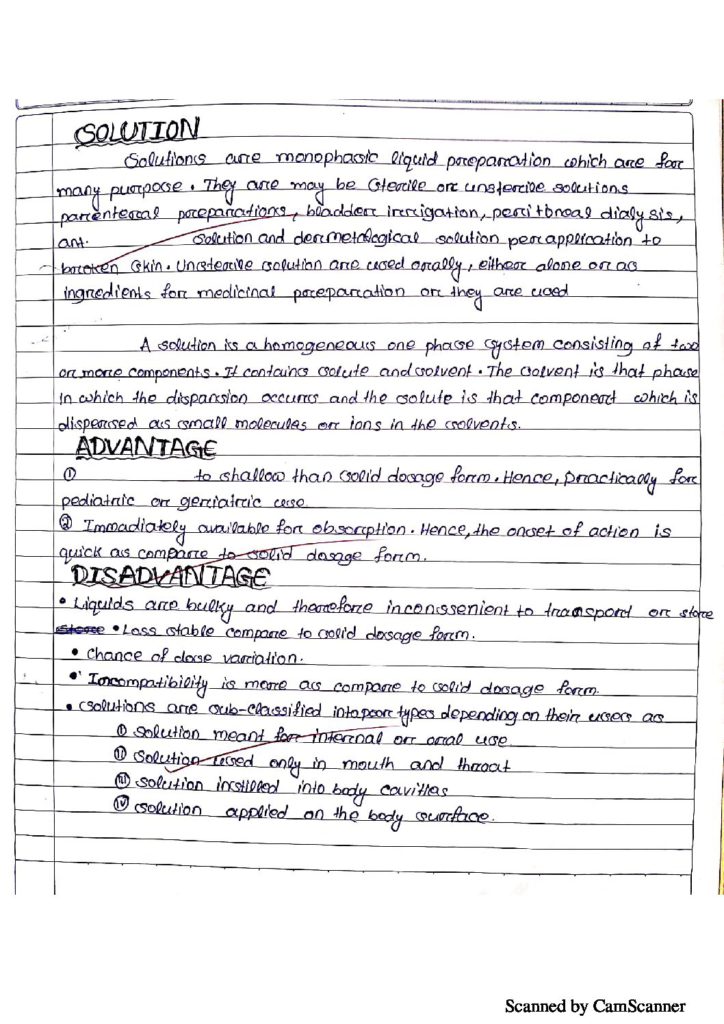 SOLUTION
Solutions are monophasic liquid preparation which are for
many purpose. They are may be sterile or unsterile solutions
parenteral preparations, bladder irrigation, peritoneal dialysis,
ant. solution and dermetological solution per application to
broken skin. Unsterile solution are used orally, either alone or as
ingredients for medicinal preparation or they are used
A solution is a homogeneous one phase system consisting of two
or more components. It contains solute and solvent. The solvent is that phase
in which the dispansion occurrs and the solute is that component which is
dispersed as small molecules or ions in the solvents.
ADVANTAGE
① to shallow than solid dosage form. Hence, practically for
pediatric or geriatric use
② Immadiately available for obsorption. Hence, the onset of action is
quick as compare to solid dosage form.
DISADVANTAGE
• Liquids are bulky and therefore inconssenient to transpord or store
store • Loss stable compare to solid dosage form.
• Chance of dose variation.
• Incompatibility is more as compare to solid dosage form.
• Solutions are sub-classified into poor types depending on their users as
(i) Solution meant for internal or oral use
(ii) Solution used only in mouth and throat
(iii) Solution instilled into body cavities
(iv) Solution applied on the body surface.
Scanned by CamScanner